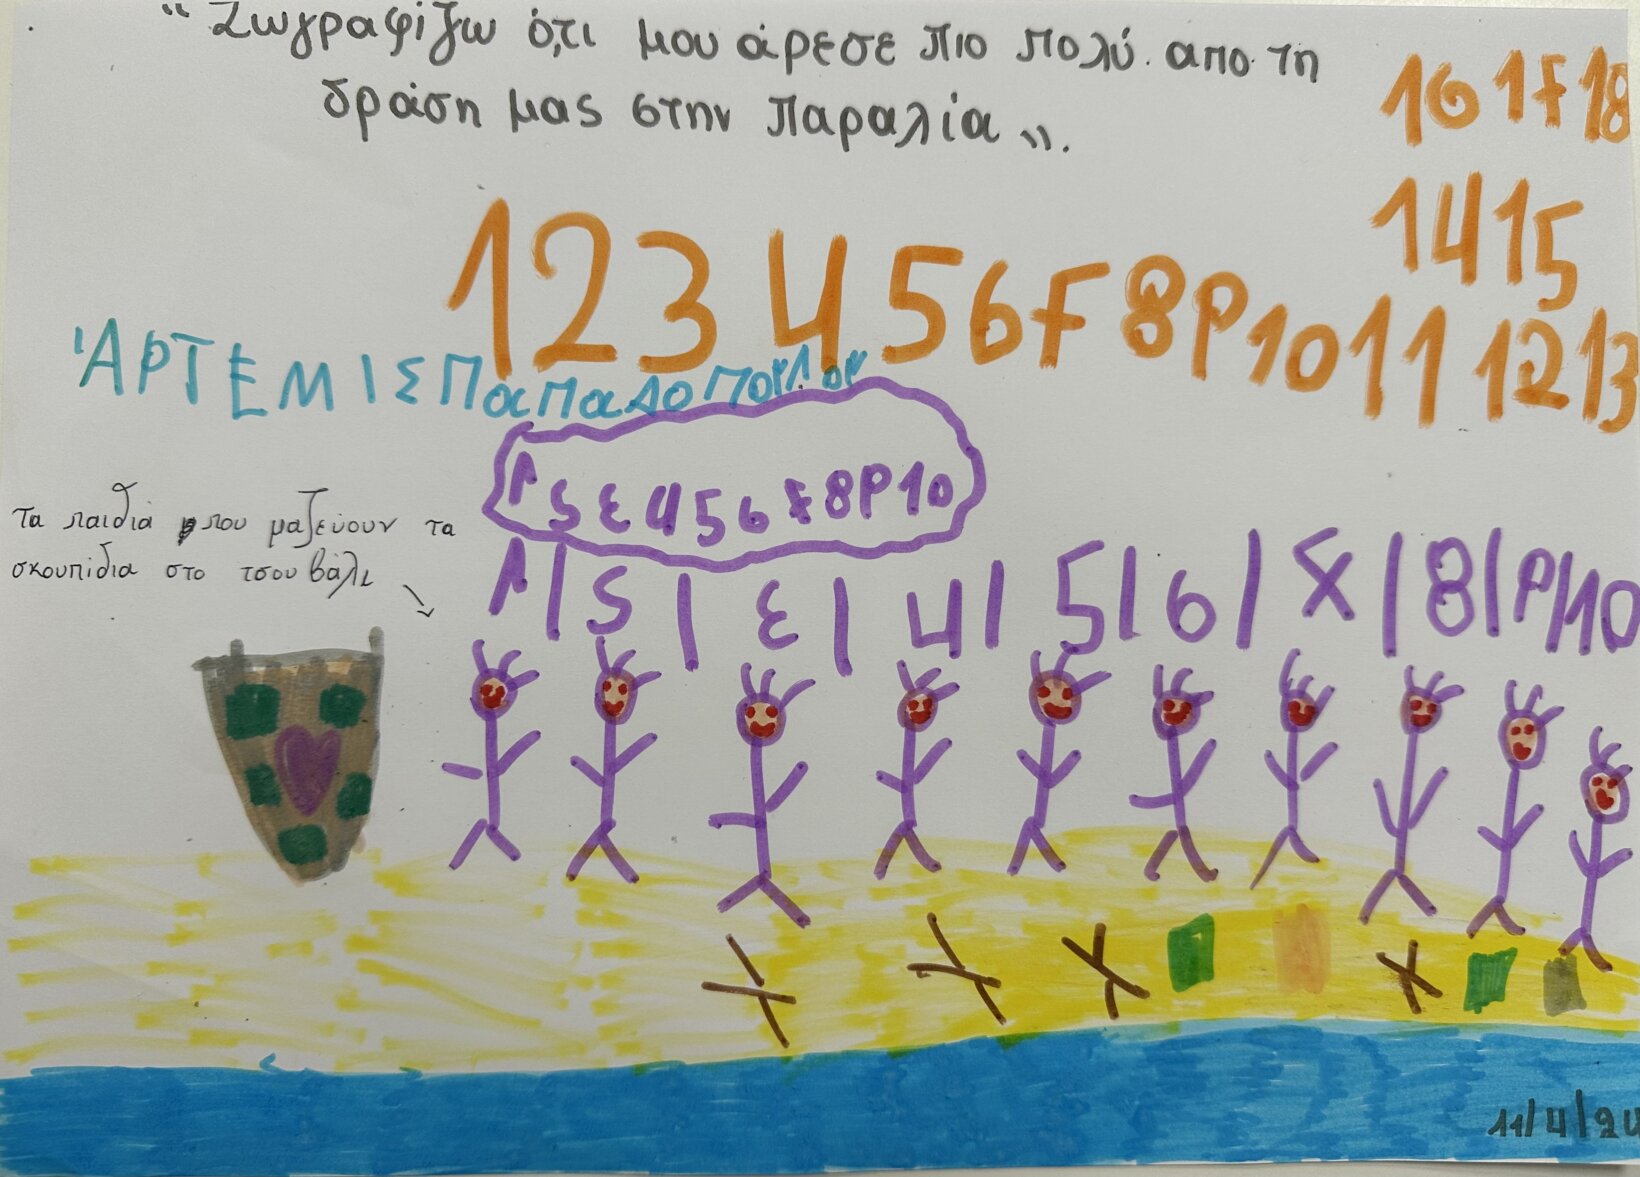 “ Ζωγραφίζω ό,τι μου άρεσε πιο πολύ απο τη
δράση μας στην παραλία ”.
16 17 18
14 15
1 2 3 4 5 6 7 8 9 10 11 12 13
ΆΡΤΕΜΙΣ ΠαΠαΔοΠοΥΛοΥ
1 2 3 4 5 6 7 8 9 10
τα παιδιά που μαζεύουν τα
σκουπίδια στο τσουβάλι
1 | 2 | 3 | 4 | 5 | 6 | 7 | 8 | 9 | 10
11/4/24